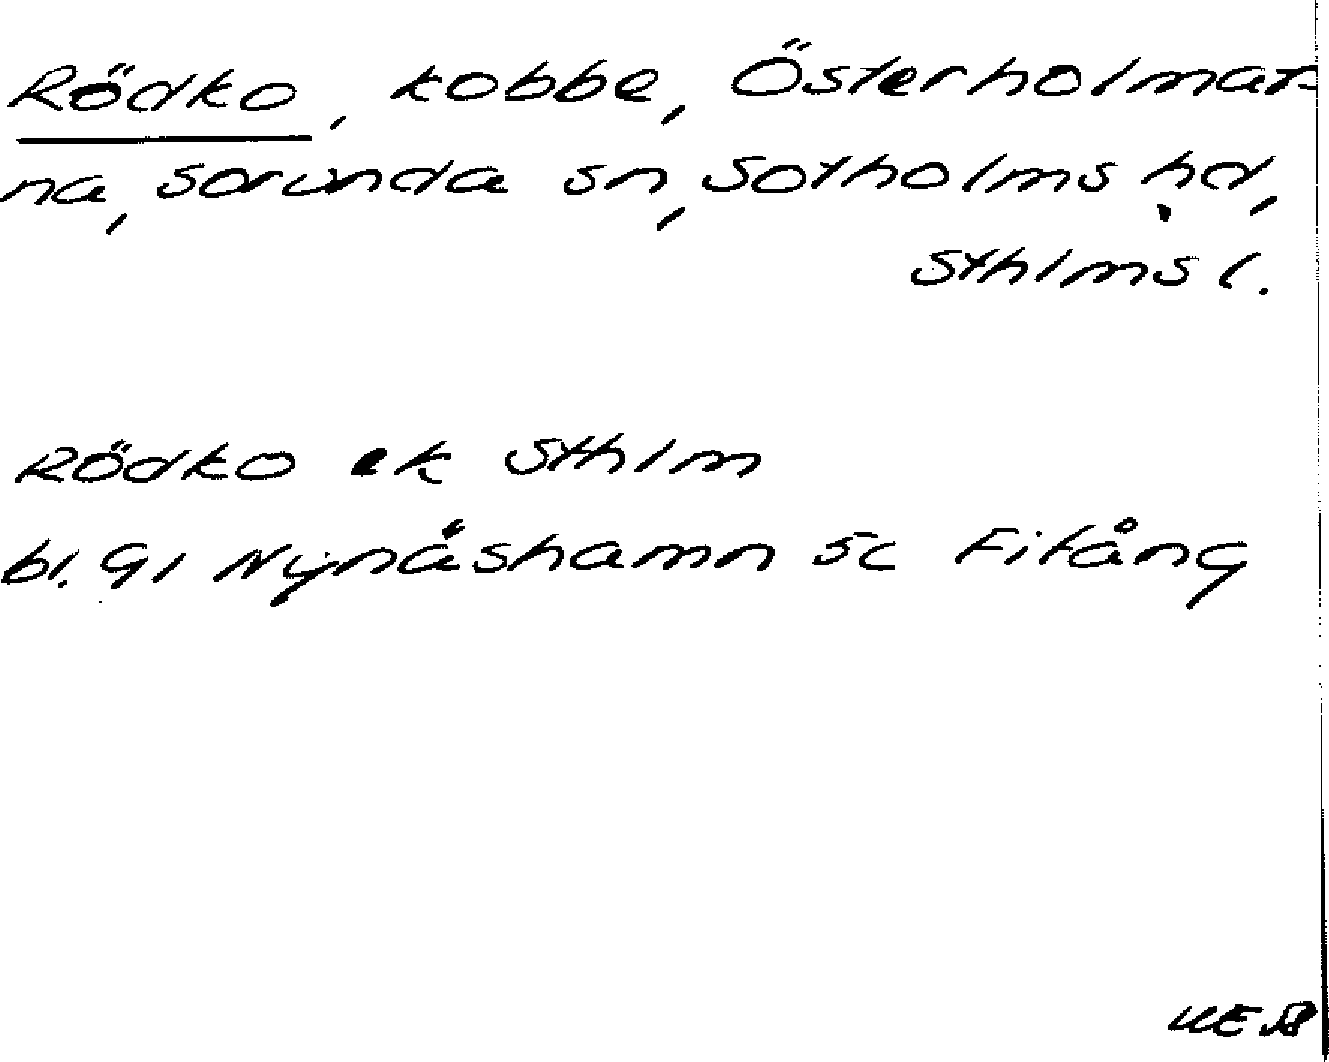 Rödko, kobbe, Österholmar-
na, Sorunda sn, Sotholms hd,
Sthlms l.
Rödko ek Sthlm
bl. 91 Nynäshamn 5c Fifång